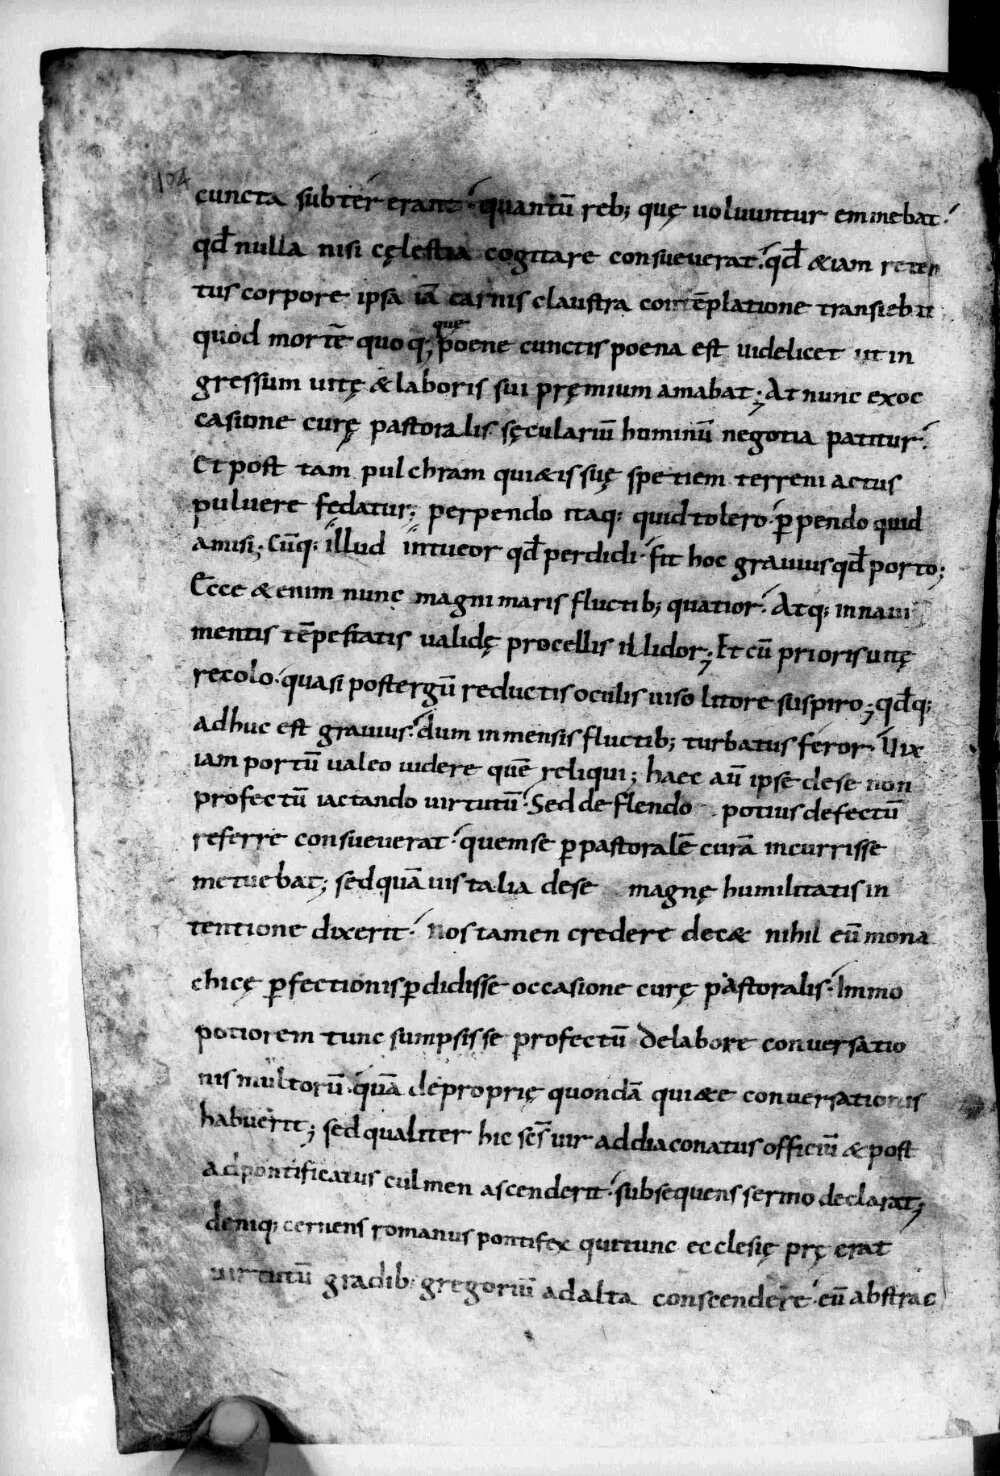 104
cuncta subter erant. quantū reb; quę uoluuntur eminebat.
qđ nulla nisi cęlestia cogitare consueuerat. qđ &iam reten
tus corpore ipsa iā carnis claustra contēplatione transiebat
quod mortē quoq; pene cunctis poena est uidelicet ut in
que
gressum uitę & laboris sui pręmium amabat; At nunc exoc
casione curę pastoralis sęculariū hominū negotia patitur.
Et post tam pulchram qui&is suę spetiem terreni actus
puluere fedatur; perpendo itaq: quid tolero. ꝑpendo quid
amisi; Cūq: illud intueor qđ perdidi. fit hoc grauius qđ porto;
Ecce &enim nunc magni maris fluctib; quatior. Atq: innaui
mentis tēpestatis ualidę procellis illidor; Et cū prioris uitę
recolo. quasi postergū reductis oculis uiso litore suspiro; qđq;
adhuc est grauius. dum inmensis fluctib; turbatus feror. Uix
iam portū ualeo uidere quē reliqui; haec aū ipse dese non
profectū iactando uirtutū. Sed deflendo potius defectū
referre consueuerat. quem se ꝑpastoralē curā incurrisse
metuebat; sed quāuis talia dese magnę humilitatis in
tentione dixerit. nos tamen credere dec& nihil eū mona
chicę ꝑfectionis ꝑdidisse occasione curę pastoralis. Immo
potiorem tunc sumpsisse profectū delabore conuersatio
nis multorū. quā deproprię quondā qui&e conuersationis
habuerit; sed qualiter hic scs̄ uir addiaconatus officiū & post
adpontificatus culmen ascenderit. subsequens sermo declarat;
deniq; cernens romanus pontifex qui tunc ecclesię prę erat
uirtutū gradib; gregoriū adalta conscendere. eū abstrac